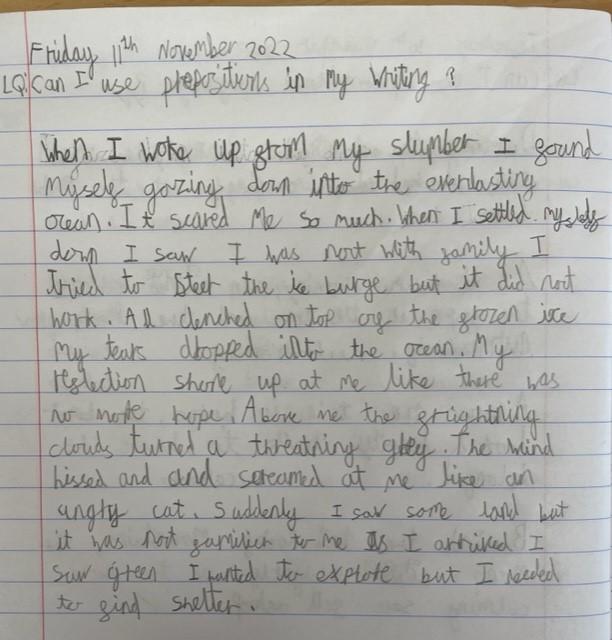 Friday 11th November 2022
LQ: Can I use prepositions in my writing?
When I woke up from my slumber I found
myself gazing down into the everlasting
ocean. It scared me so much. When I settled myself
down I saw I was nort with family I
tried to steer the ice burge but it did nort
work. All clenched on top of the frozen isce
my tears dropped into the ocean. My
reflection shone up at me like there was
no more hope! Above me the frightning
clouds turned a threatning grey. The wind
hissed and and screamed at me like an
angry cat. Suddenly I saw some land but
it was not familier to me As I arrived I
saw green I wanted to explore but I needed
to find shelter.